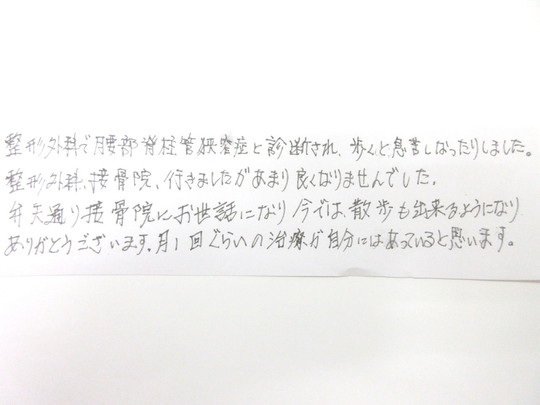 整形外科で腰部脊柱管狭窄症と診断され、歩くと息苦しなったりしました。
整形外科、接骨院、行きましたがあまり良くなりませんでした。
弁天通り接骨院にお世話になり今では、散歩も出来るようになり
ありがとうございます。月1回ぐらいの治療が自分にはあっていると思います。